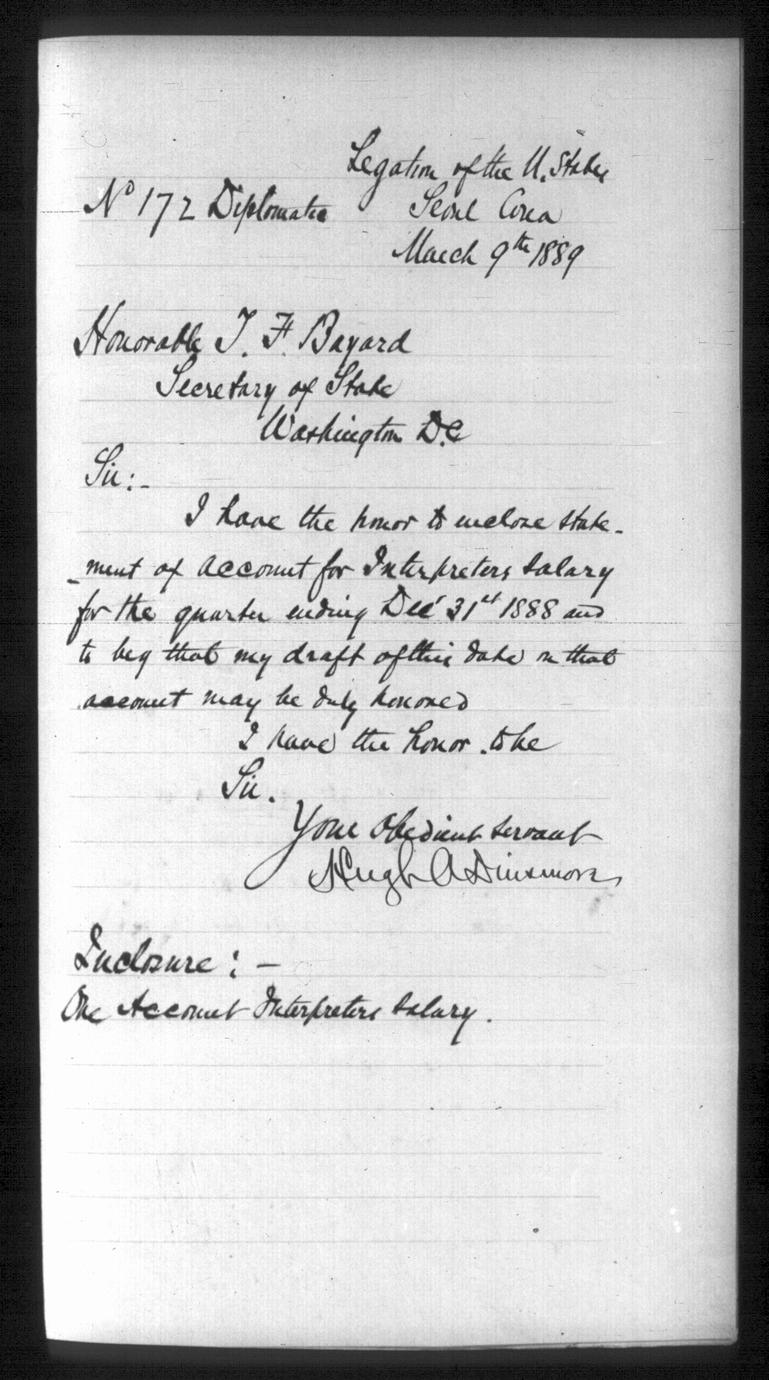 Legation of the U. States
No 172 Diplomatic
Seoul Corea
March 9th 1889
Honorable T. F. Bayard
Secretary of State
Washington D.C
Sir:-
I have the honor to enclose state-
-ment of account for Interpreters Salary
for the quarter ending Dec' 31st 1888 and
to beg that my draft of this date on that
account may be duly honored
I have the honor to be
Sir.
Your Obedient Servant
Hugh A Dinsmore
Inclosure : —
One Account Interpreters Salary.